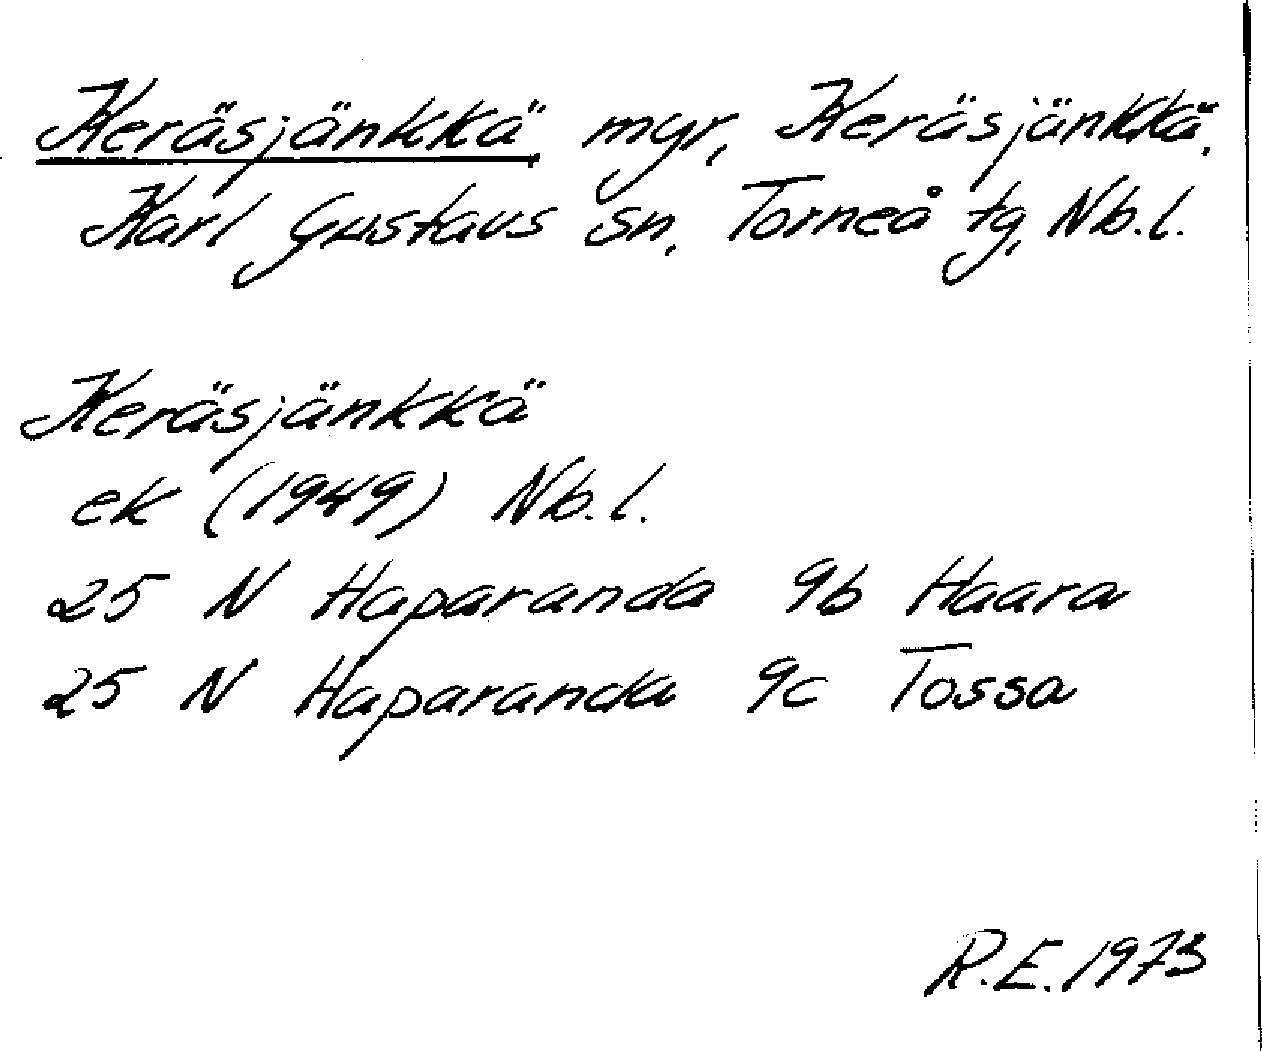 Keräsjänkkä myr, Keräsjänkkä,
Karl Gustavs sn, Torneå tg, Nb.l.
Keräsjänkkä
ek (1949) Nb.l.
25 N Haparanda 9b Haara
25 N Haparanda 9c Tossa
R.E. 1973